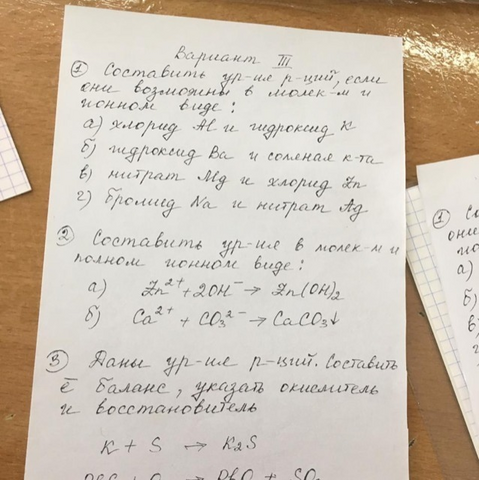 Вариант III
① Составить ур-ие р-ций, если
они возможны в молек-м и
ионном виде:
а) хлорид Al и гидроксид K
б) гидроксид Ba и соляная к-та
в) нитрат Mg и хлорид Zn
г) бромид Na и нитрат Ag
② Составить ур-ие в молек-м и
полном ионном виде:
а) Zn²⁺ + 2OH⁻ → Zn(OH)₂
б) Ca²⁺ + CO₃²⁻ → CaCO₃↓
③ Даны ур-ие р-ций. Составить
ē баланс, указать окислитель
и восстановитель
K + S → K₂S
①
они
а)
б)
в)